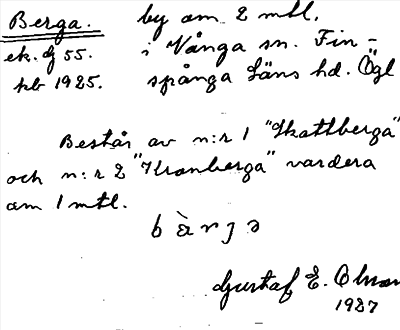 Berga. by om 2 mtl.
ek. bl 55. i Vånga sn. Fin-
hb 1925. spånga Läns hd. Ögl
Består av n:r 1 "Skattberga"
och n:r 2 "Kronberga" vardera
om 1 mtl.
Gustaf E. Olsson
1927